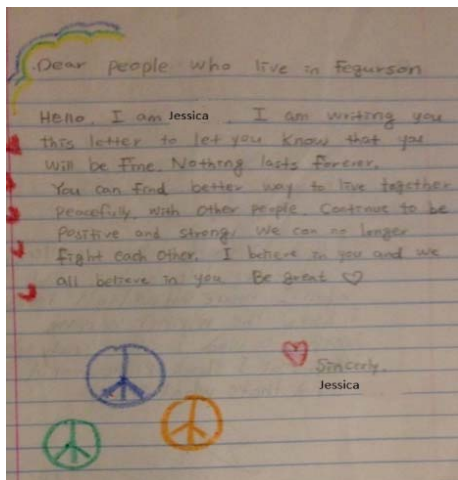 Dear people who live in fegurson
Hello, I am Jessica. I am writing you
this letter to let you know that you
will be fine. Nothing lasts forever.
You can find better way to live together
peacefully, with other people. Continue to be
Positive and strong. We can no longer
fight each other. I believe in you and we
all believe in you Be great ♡
Sincerly,
Jessica